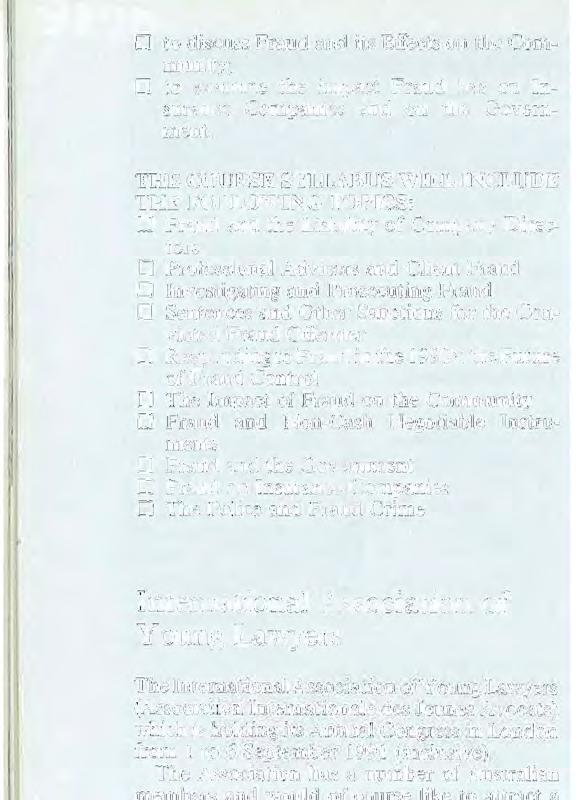 ☐ to discuss Fraud and its Effects on the Com-
munity;
☐ to examine the impact Fraud has on In-
surance Companies and on the Govern-
ment.
THE COURSE SYLLABUS WILL INCLUDE
THE FOLLOWING TOPICS:
☐ Fraud and the Liability of Company Direc-
tors
☐ Professional Advisors and Client Fraud
☐ Investigating and Prosecuting Fraud
☐ Sentences and Other Sanctions for the Con-
victed Fraud Offender
☐ Responding to Fraud in the 1990s: the Future
of Fraud Control
☐ The Impact of Fraud on the Community
☐ Fraud and Non-Cash Negotiable Instru-
ments
☐ Fraud and the Government
☐ Fraud on Insurance Companies
☐ The Police and Fraud Crime
International Association of
Young Lawyers
The International Association of Young Lawyers
(Association Internationale des Jeunes Avocats)
which is holding its Annual Congress in London
from 1 to 5 September 1991 (inclusive).
The Association has a number of Australian
members and would of course like to attract a